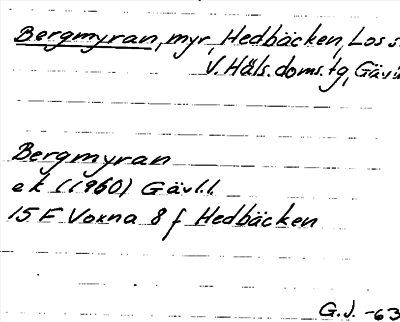 Bergmyran, myr, Hedbäcken, Los s.
V. Häls. doms. tg, Gävl
Bergmyran
ek (1960) Gävl.l.
15 F Voxna 8 f Hedbäcken
G.J. -63